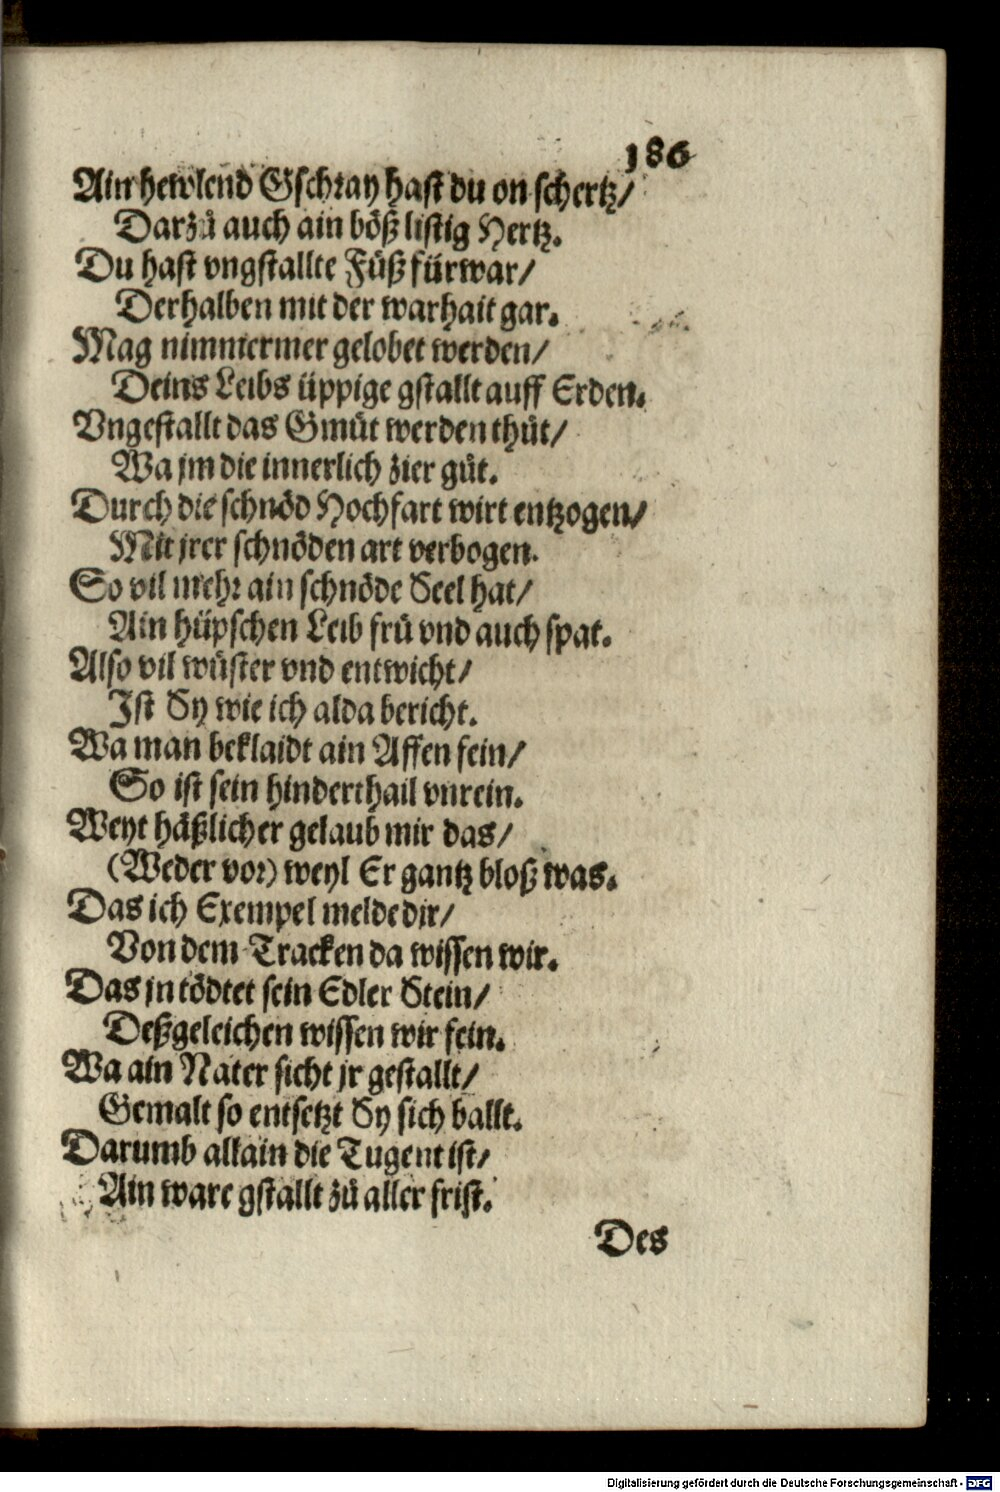 186
Ain hewlend Gschray hast du on schertz/
Darzů auch ain böß listig Hertz.
Du hast vngstallte Füß fürwar/
Derhalben mit der warhait gar.
Mag nimmermer gelobet werden/
Deins Leibs üppige gstallt auff Erden.
Vngestallt das Gmüt werden thůt/
Wa jm die innerlich zier gůt.
Durch die schnöd Hochfart wirt entzogen/
Mit jrer schnöden art verbogen.
So vil mehr ain schnöde Seel hat/
Ain hüpschen Leib frů vnd auch spat.
Also vil wüster vnd entwicht/
Ist Sy wie ich alda bericht.
Wa man beklaidt ain Affen fein/
So ist sein hinderthail vnrein.
Weyt häßlicher gelaub mir das/
(Weder vor) weyl Er gantz bloß was.
Das ich Exempel melde dir/
Von dem Tracken da wissen wir.
Das jn tödtet sein Edler Stein/
Deßgeleichen wissen wir fein.
Wa ain Nater sicht jr gestallt/
Gemalt so entsetzt Sy sich ballt.
Darumb allain die Tugent ist/
Ain ware gstallt zů aller frist.
Des
Digitalisierung gefördert durch die Deutsche Forschungsgemeinschaft - DFG